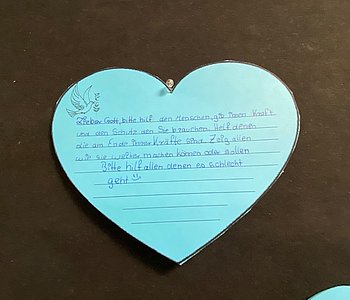 Lieber Gott, bitte hilf den Menschen, gib ihnen Kraft
und den Schutz den Sie brauchen. Helf denen
die am Ende ihrer Kräfte sind. Zeig allen
wie sie weiter machen können oder sollen
Bitte hilf allen denen es schlecht
geht